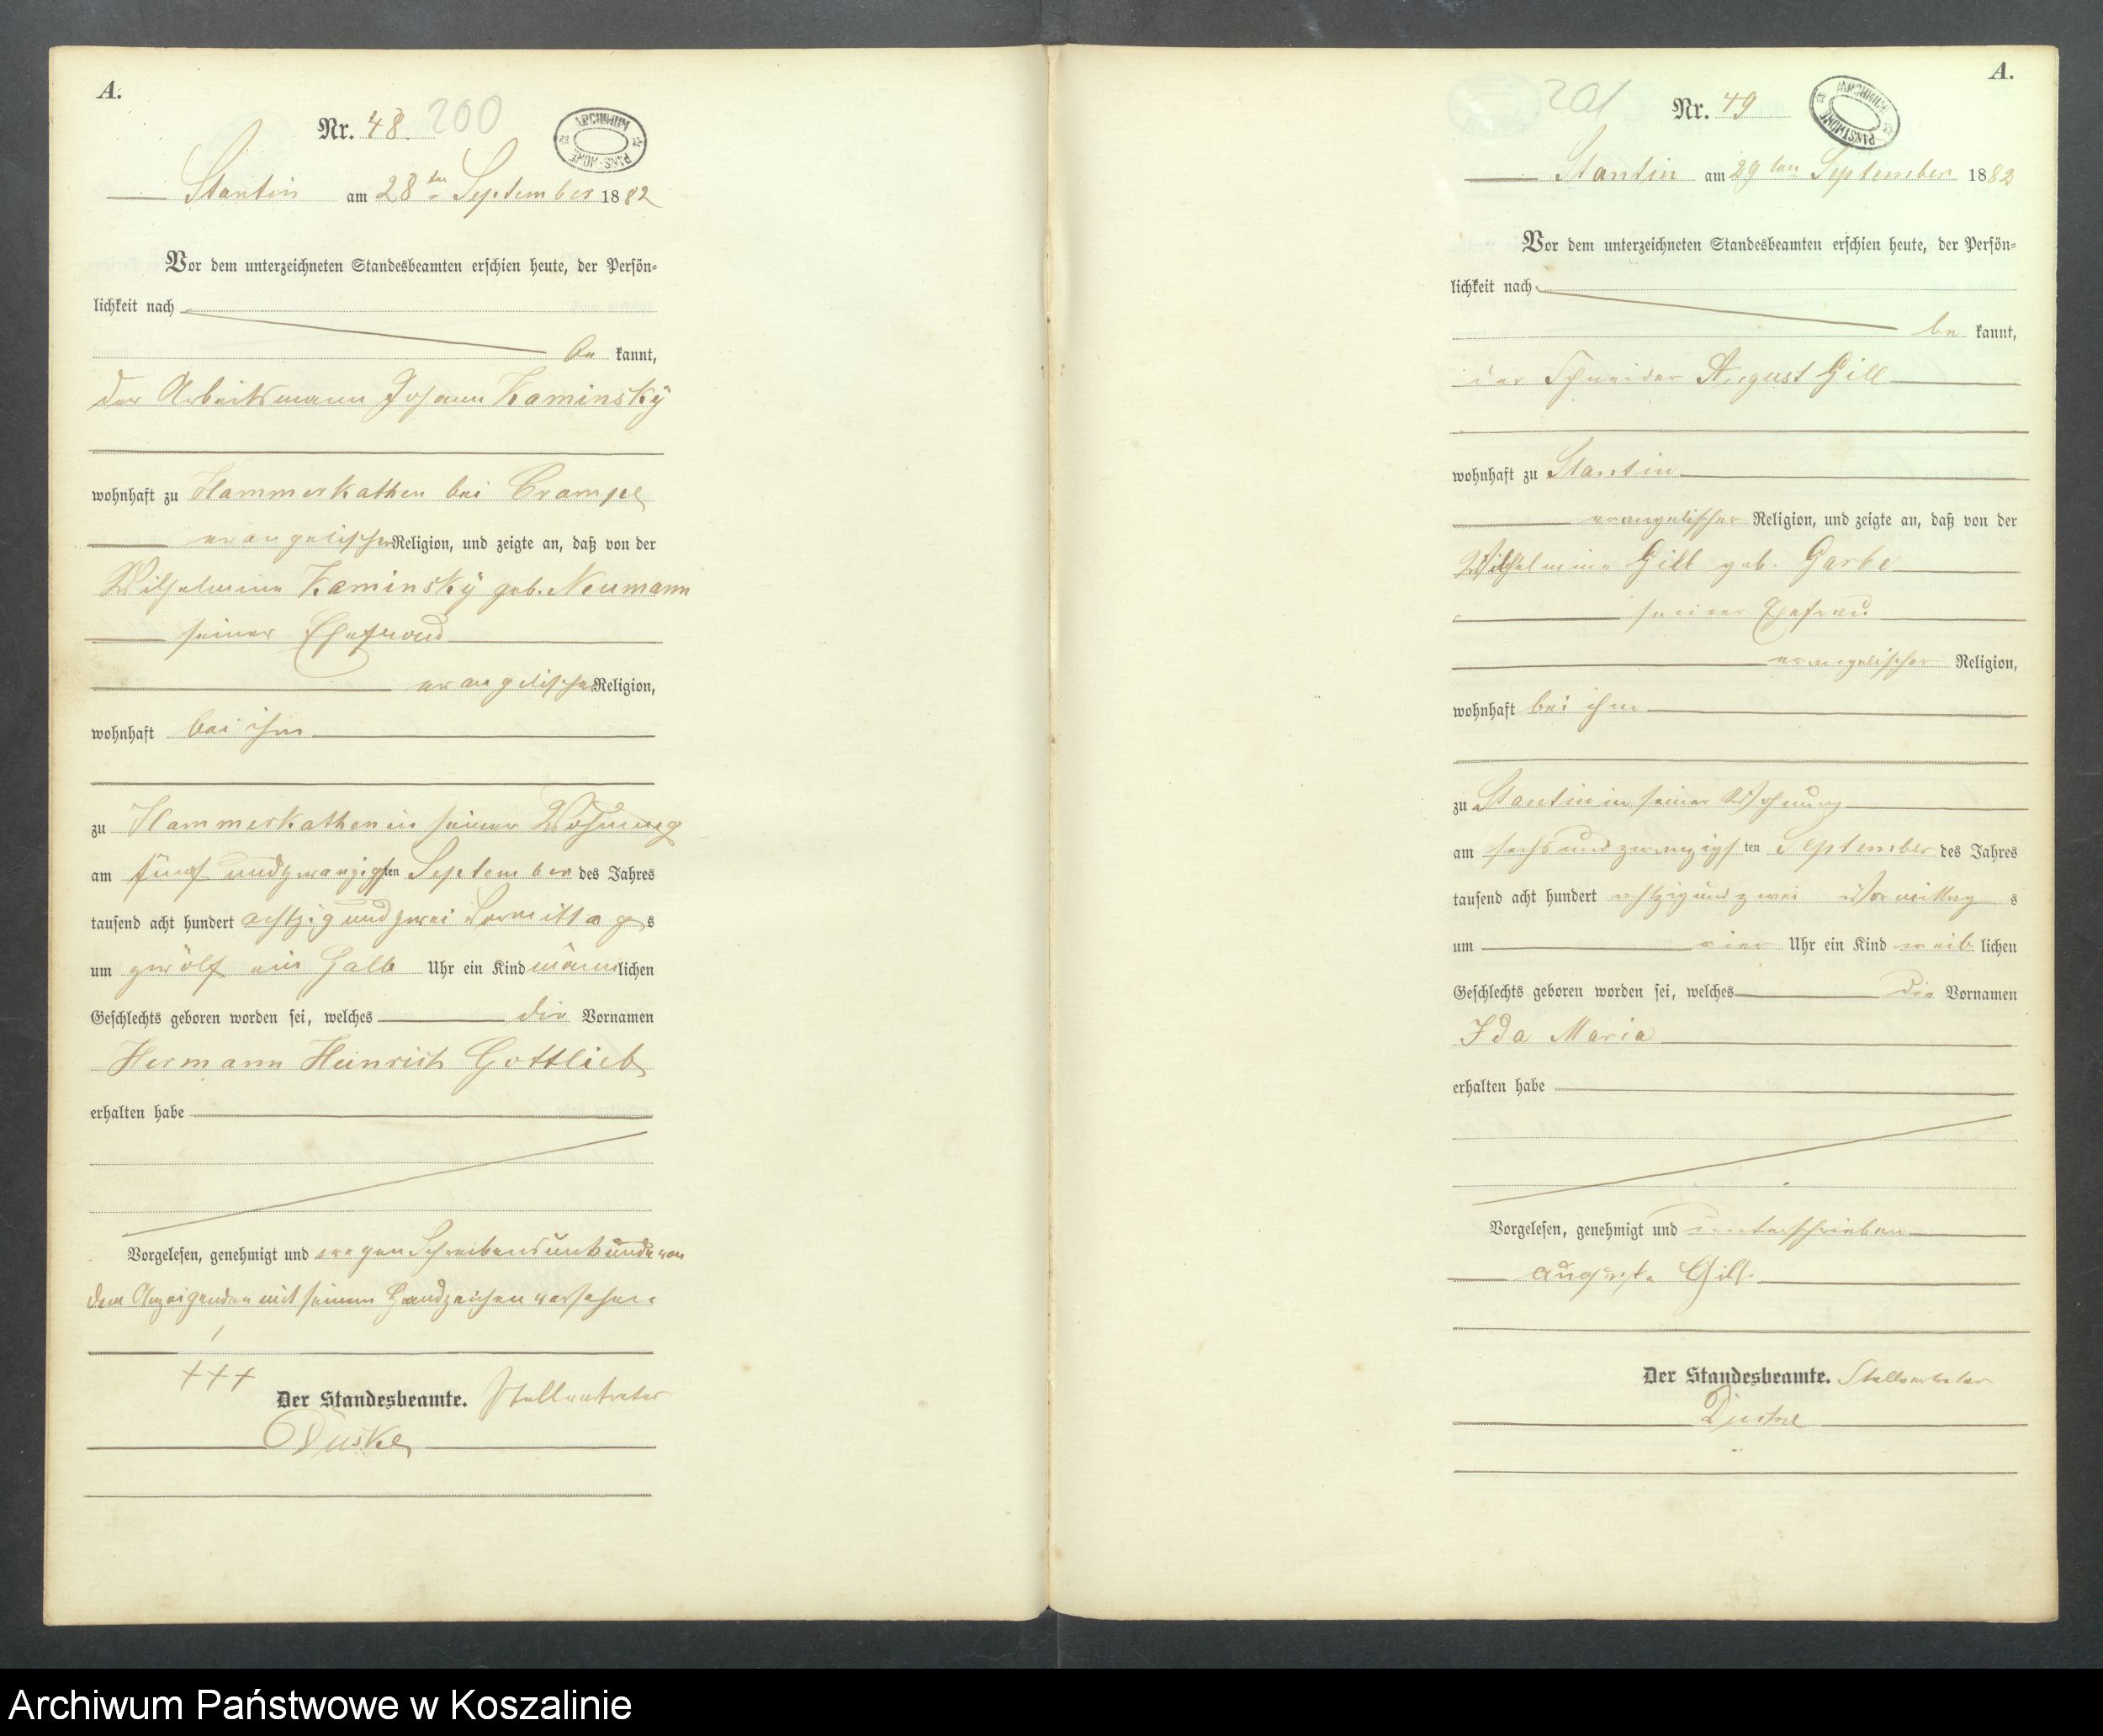 A.
Nr. 48. 200
ARCHIWUM PAŃSTWOWE
Stantin am 28ten September 1882
Vor dem unterzeichneten Standesbeamten erschien heute, der Persön=
lichkeit nach
be kannt,
der Arbeitsmann Johann Kaminsky
wohnhaft zu Hammerkathen bei Crampe
evangelischer Religion, und zeigte an, daß von der
Wilhelmine Kaminsky geb. Neumann
seiner Ehefrau
evangelischer Religion,
wohnhaft bei ihm
zu Hammerkathen in seiner Wohnung
am fünf undzwanzigsten September des Jahres
tausend acht hundert achtzig und zwei Vormittags
um zwölf ein halb Uhr ein Kind männlichen
Geschlechts geboren worden sei, welches die Vornamen
Hermann Heinrich Gottlieb
erhalten habe
Vorgelesen, genehmigt und wegen Schreibensunkunde von
dem Anzeigenden mit seinem Handzeichen versehen.
+++
Der Standesbeamte. Stellvertreter
A.
201 Nr. 49
ARCHIWUM PAŃSTWOWE
Stantin am 29ten September 1882
Vor dem unterzeichneten Standesbeamten erschien heute, der Persön=
lichkeit nach
be kannt,
der Schneider August Gill
wohnhaft zu Stantin
evangelischer Religion, und zeigte an, daß von der
Wilhelmine Gill geb. Garbe
seiner Ehefrau
evangelischer Religion,
wohnhaft bei ihm
zu Stantin in seiner Wohnung
am sechsundzwanzigsten September des Jahres
tausend acht hundert achtzig und zwei Vormittags
um vier Uhr ein Kind weiblichen
Geschlechts geboren worden sei, welches die Vornamen
Ida Maria
erhalten habe
Vorgelesen, genehmigt und unterschrieben
Gill.
Der Standesbeamte. Stellvertreter
Archiwum Państwowe w Koszalinie